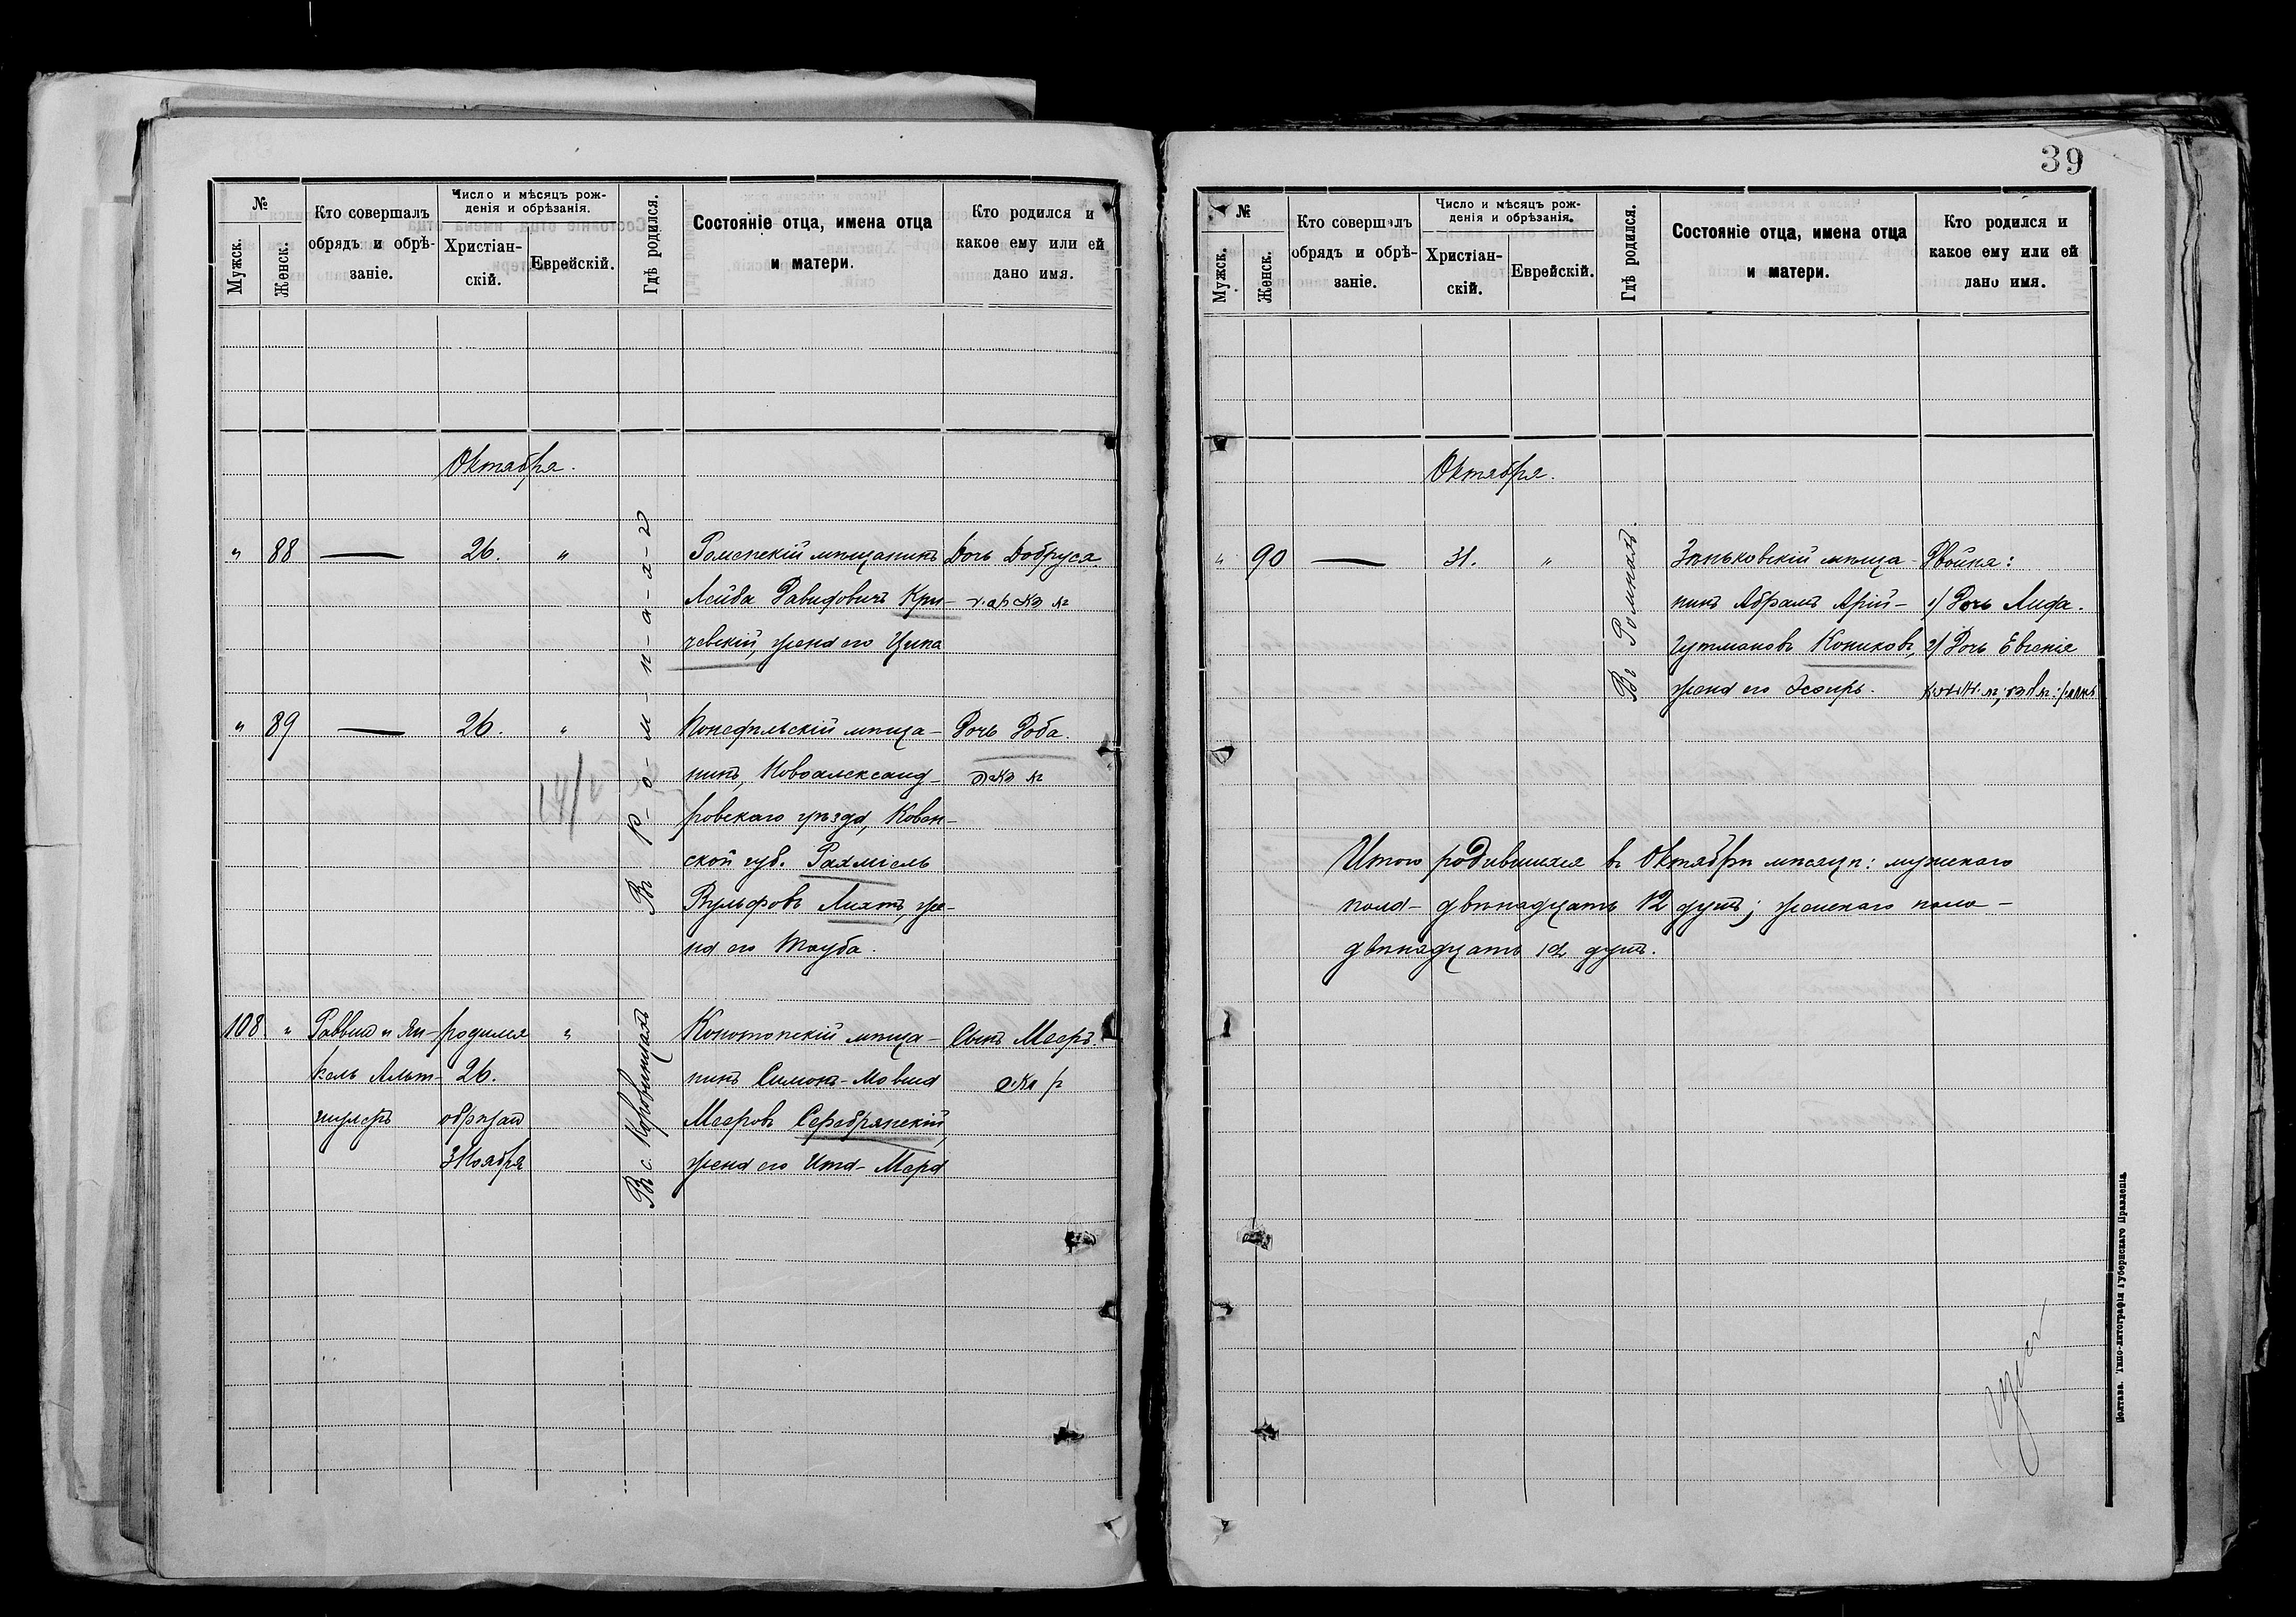 №
Мужск.
Женск.
Кто совершалъ
обрядъ и обрѣ-
заніе.
Число и мѣсяцъ рож-
денія и обрѣзанія.
Христіан-
скій.
Еврейскій.
Гдѣ родился.
Состояніе отца, имена отца
и матери.
Кто родился и
какое ему или ей
дано имя.
Октября.
" 88 — 26. "
Въ Ромнахъ
Роменскій мѣщанинъ
Лейба Давидовичъ Кри-
чевскій, жена его Ципа
Дочь Добруса.
" 89 — 26. "
Конефильскій мѣща-
нинъ, Новоалександ-
ровскаго уѣзда, Ковен-
ской губ. Рахміель
Вульфовъ Лихтъ, же-
на его Тауба.
Дочь Роба.
108 "
Раввинъ и Ян-
кель Альт-
шулеръ
родился
26.
обрѣзан
3 Ноября
"
Въ с. Коровинцахъ
Конотопскій мѣща-
нинъ Симонъ-Мовша
Мееровъ Серебрянскій,
жена его Ита-Мера
Сынъ Мееръ.
39
№
Мужск.
Женск.
Кто совершалъ
обрядъ и обрѣ-
заніе.
Число и мѣсяцъ рож-
денія и обрѣзанія.
Христіан-
скій.
Еврейскій.
Гдѣ родился.
Состояніе отца, имена отца
и матери.
Кто родился и
какое ему или ей
дано имя.
Октября.
" 90 — 31. "
Въ Ромнахъ.
Зѣньковскій мѣща-
нинъ Абрамъ Арій-
Гутмановъ Кониковъ,
жена его Эсѳирь.
Двойня:
1) Дочь Лида.
2) Дочь Евгенія
Итого родившихся въ Октябрѣ мѣсяцѣ: мужскаго
пола - двѣнадцать 12 душъ; женскаго пола -
двѣнадцать 12 душъ.
Полтава. Типо-литографія Губернскаго Правленія